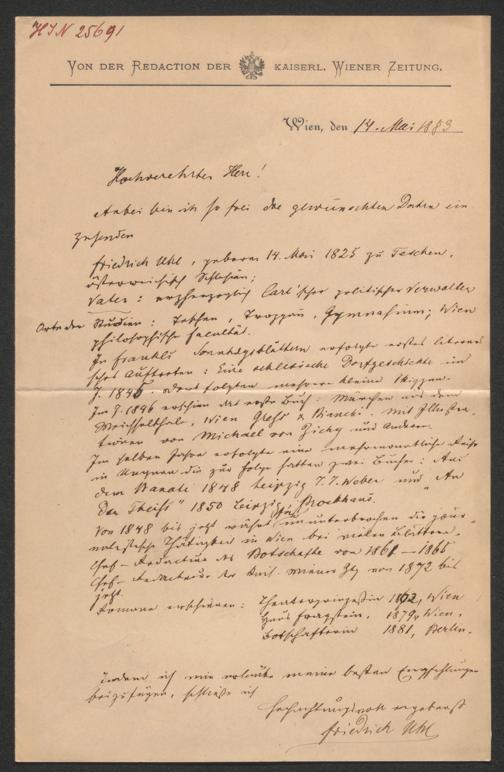 HIN 25691
VON DER REDACTION DER KAISERL. WIENER ZEITUNG.
Wien, den 14. Mai 1883
Hochverehrter Herr!
Anbei bin ich so frei die gewünschten Daten ein
zusenden
Friedrich Uhl, geboren 14. Mai 1825 zu Teschen,
österreichisch Schlesien;
Vater: erzherzoglich Carl'scher politischer Verwalter
Orte der Studien: Teschen, Troppau, Gymnasium; Wien
philosophische Facultät.
In Frankls Sonntagsblättern erfolgte erstes literari
sches Auftreten: Eine schlesische Dorfgeschichte im
J. 1845. Dort folgten mehrere kleine Skizzen.
Im J. 1846 erschien das erste Buch: Märchen aus dem
Weichselthale, Wien & Bianchi. Mit Illustra-
tionen von Michael von Zichy und Anderen.
Im selben Jahre erfolgte eine mehrmonatliche Reise
in Ungarn die zur Folge hatten zwei Bücher: Aus
dem Banate 1848 Leipzig J. J. Weber und "An
der Theiß" 1850 Leipzig Brockhaus.
Von 1848 bis jetzt währt ununterbrochen die jour-
nalistische Thätigkeit in Wien bei vielen Blättern.
Chef-Redacteur des Botschafter von 1861-1865.
Chef-Redacteur der Kais. Wiener Ztg von 1872 bis
jetzt.
Romane erschienen: Theaterprinzessin 1862, Wien
Haus Fragstein, 1879, Wien.
Botschafterin 1881, Berlin.
Indem ich mir erlaube meine besten Empfehlungen
beizufügen, schließe ich
hochachtungsvoll ergebenst
Friedrich Uhl